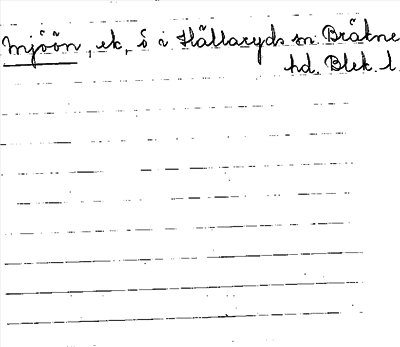 Mjöön, ek, ö i Hällaryds sn. Bräkne
hd. Blek. l.